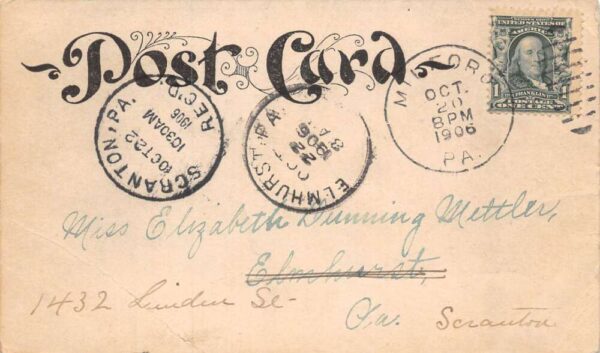 Post Card
SCRANTON, PA.
OCT 22
1030AM
1906
REC'D.
ELMHURST, PA.
OCT
22
8 A
1906
MILFORD
OCT.
20
8PM
1906
PA.
SERIES 1902
1
FRANKLIN
POSTAGE
ONE CENT
Miss Elizabeth Dunning Mettler,
Elmhurst,
1432 Linden St-
Pa. Scranton